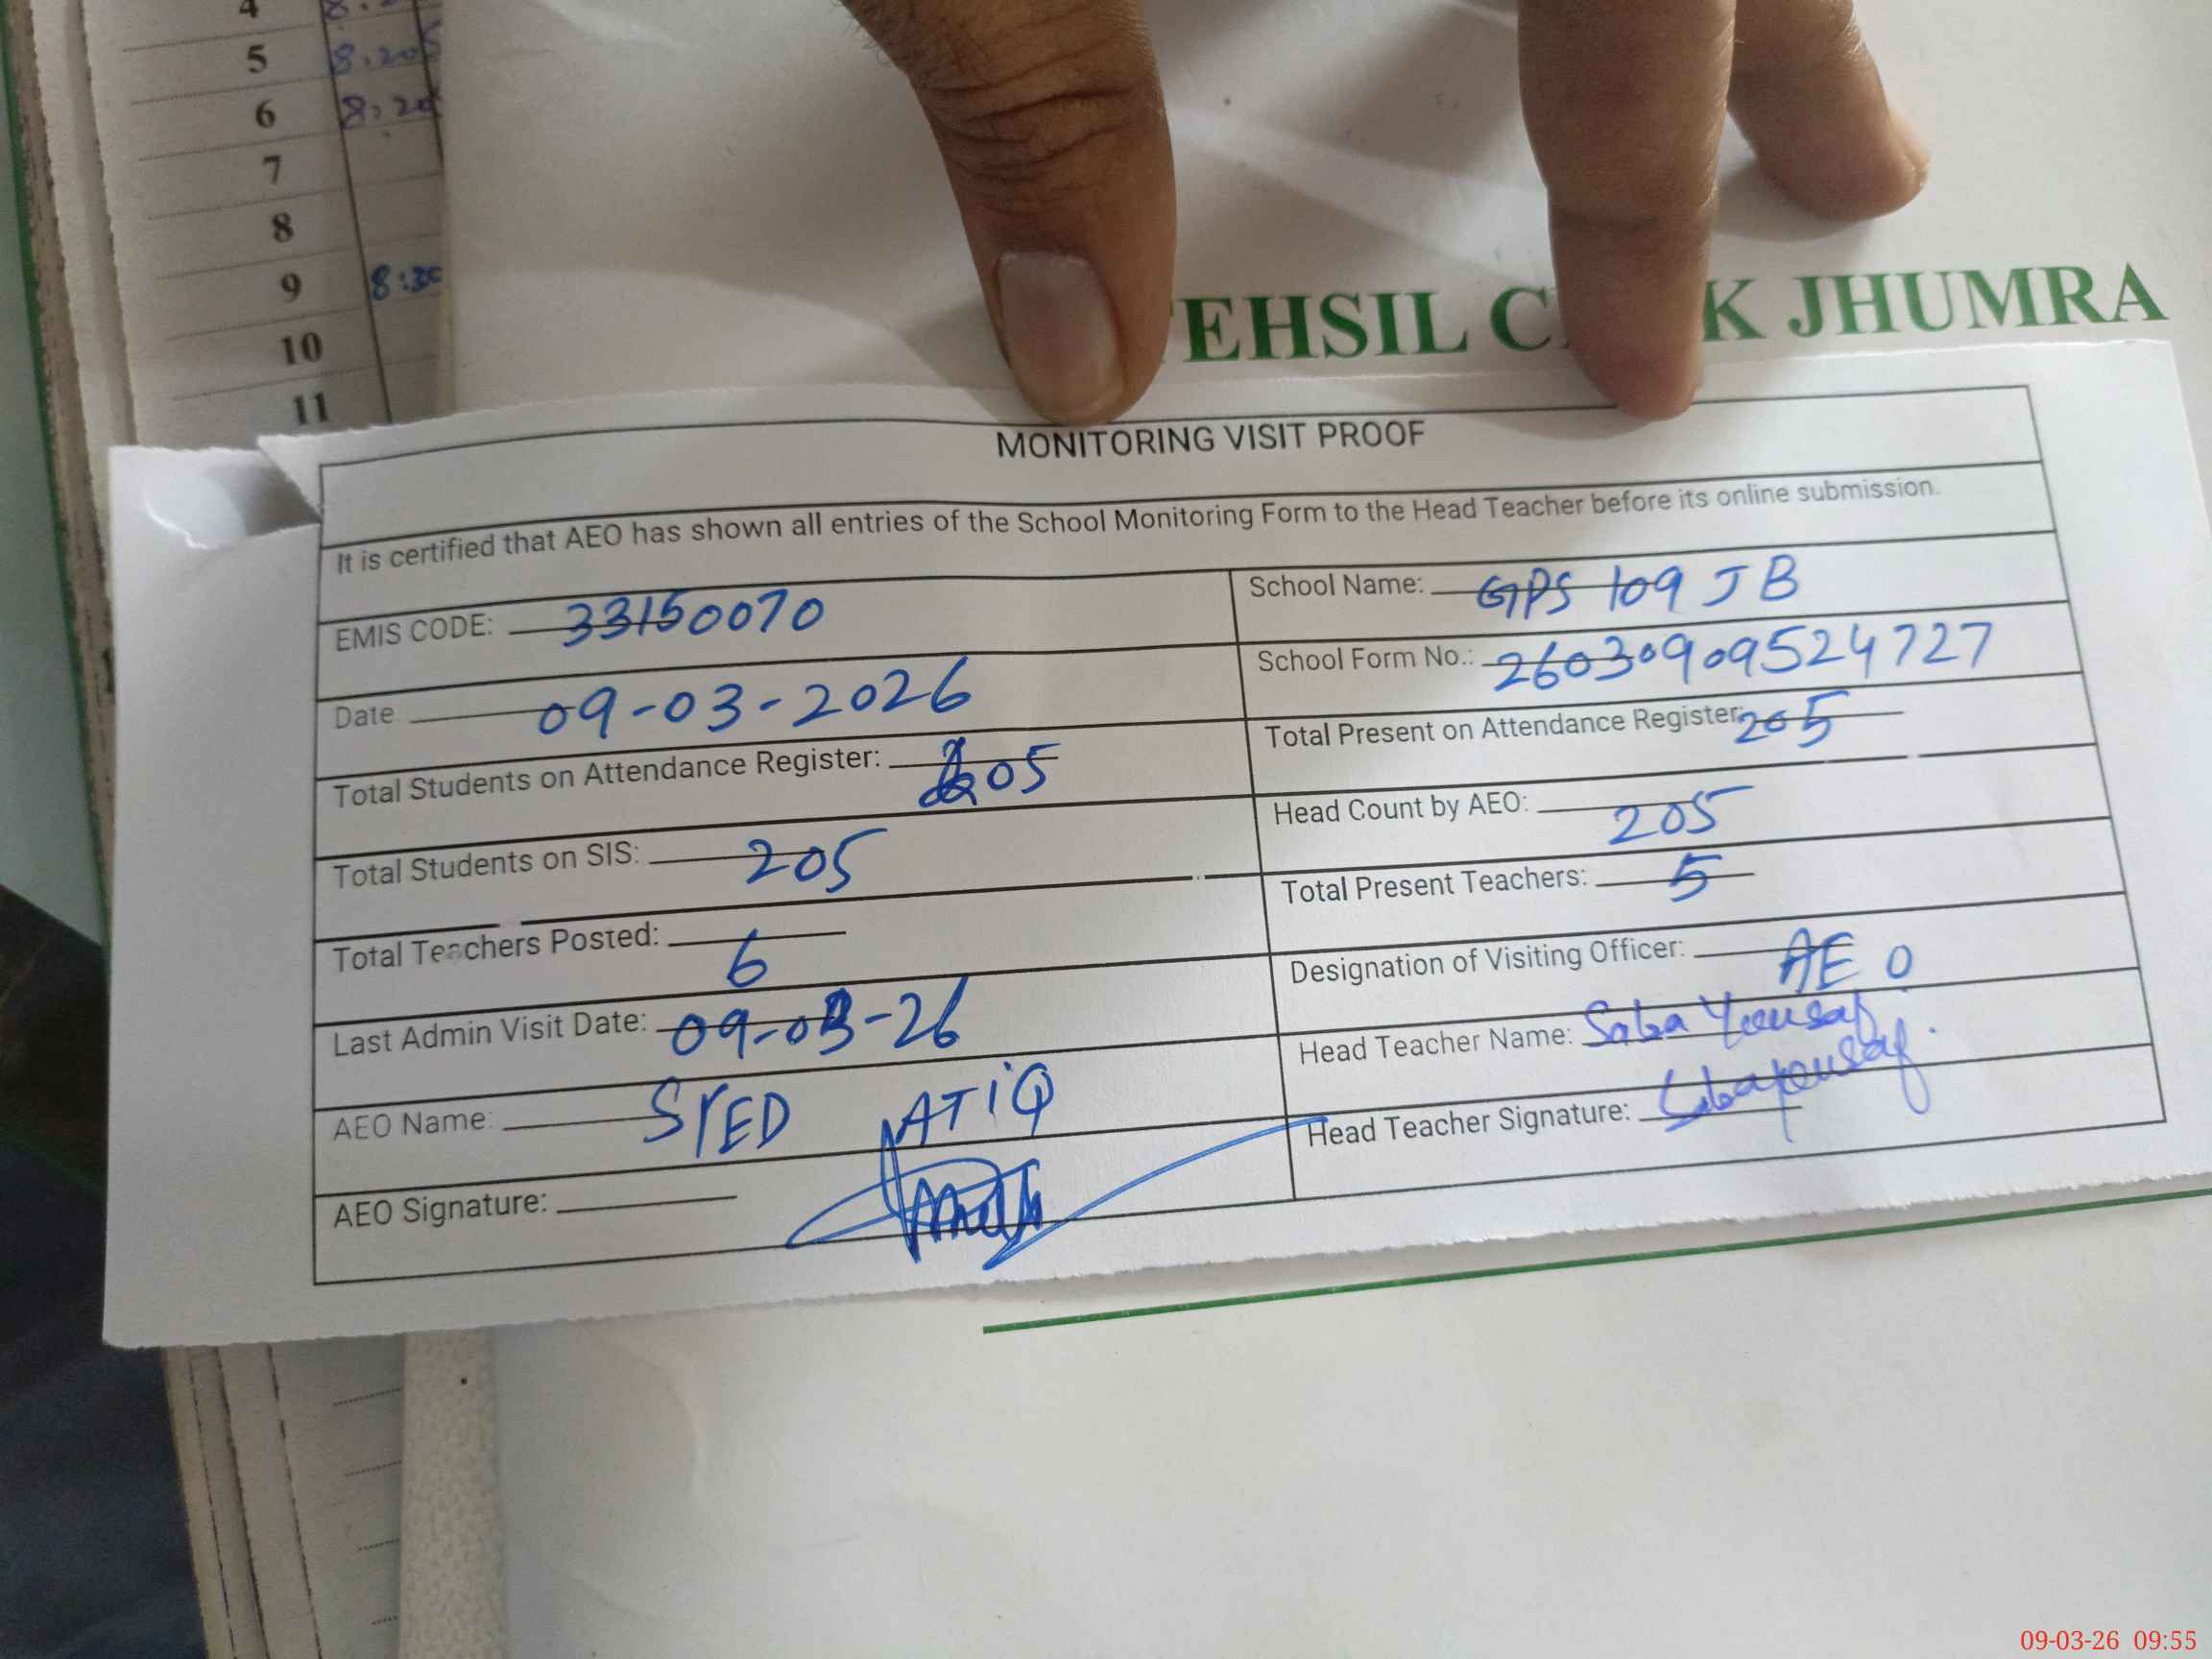 4
5 8.20
6 8.20
7
8
9 8:30
10
11
TEHSIL C K JHUMRA
MONITORING VISIT PROOF
It is certified that AEO has shown all entries of the School Monitoring Form to the Head Teacher before its online submission.
EMIS CODE: 33150070 School Name: GPS 109 JB
Date 09-03-2026 School Form No.: 26030909524727
Total Students on Attendance Register: 205 Total Present on Attendance Register: 205
Total Students on SIS: 205 Head Count by AEO: 205
Total Teachers Posted: 6 Total Present Teachers: 5
Last Admin Visit Date: 09-03-26 Designation of Visiting Officer: AEO
AEO Name: SYED ATIQ Head Teacher Name: Saba Yousaf
AEO Signature: Head Teacher Signature: Sabayousaf.
09-03-26 09:55